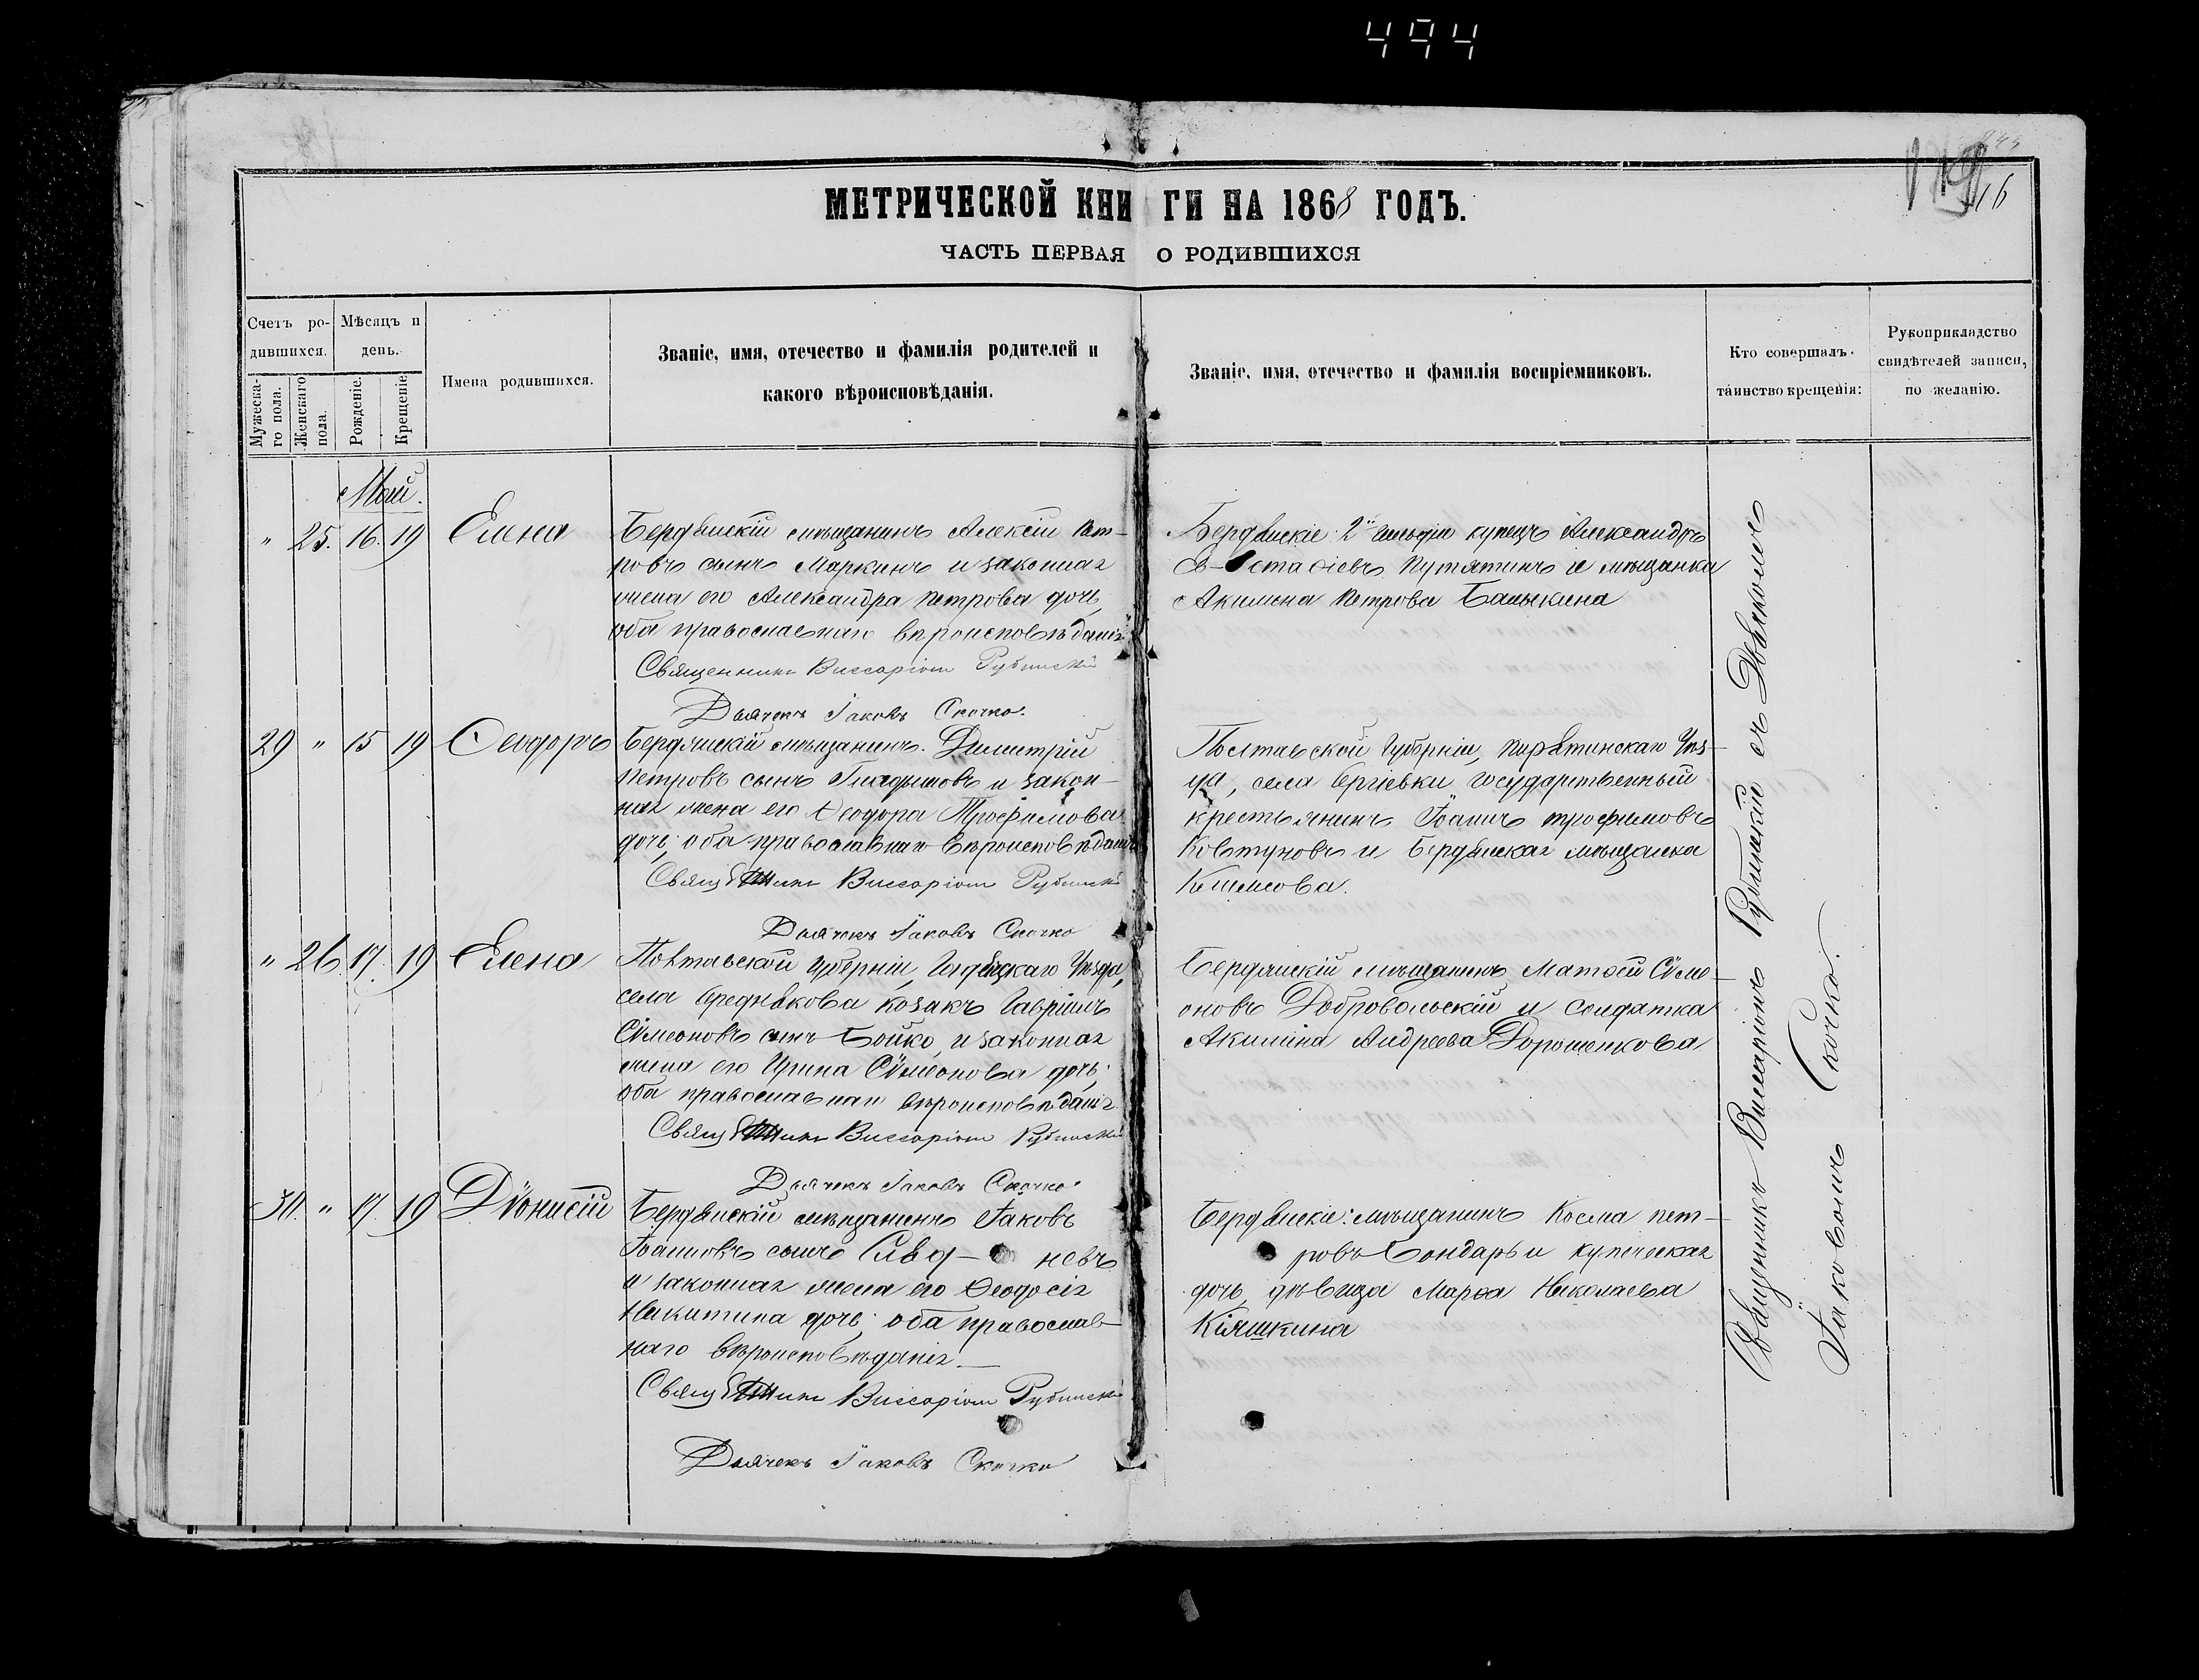 494
16
МЕТРИЧЕСКОЙ КНИГИ НА 1868 ГОДЪ.
ЧАСТЬ ПЕРВАЯ О РОДИВШИХСЯ
Счетъ родившихся.
Мѣсяцъ и день.
Мужескаго пола.
Женскаго пола.
Рожденіе.
Крещеніе
Имена родившихся.
Званіе, имя, отечество и фамилія родителей и
какого вѣроисповѣданія.
Званіе, имя, отечество и фамилія воспріемниковъ.
Кто совершалъ
таинство крещенія:
Рукоприкладство
свидѣтелей записи,
по желанію.
Май.
" 25. 16. 19 Елена
Бердянскій мѣщанинъ Алексій Пет-
ровъ сынъ Маркинъ и законная
жена его Александра Петрова дочь,
оба православнаго вѣроисповѣданія
Священникъ Виссаріонъ Рубинскій
Дьячекъ Іаковъ Скочко.
Бердянскіе: 2й гильдіи купецъ Александръ
Ев-стафіевъ Путятинъ и мѣщанка
Акилина Петрова Балыкина
29 " 15 19 Ѳеодоръ
Бердянскій мѣщанинъ Димитрій
Петровъ сынъ и закон-
ная жена его Ѳеодора Трофимова
дочь; оба православнаго вѣроисповѣданія
Священникъ Виссаріонъ Рубинскій
Дьячекъ Іаковъ Скочко
Полтавской Губерніи, Пирятинскаго Уѣз-
да, села Сергіевки государственный
крестьянинъ Іоаннъ Трофимовъ
Ковтуновъ и Бердянская мѣщанка
" 26 17. 19 Елена
Полтавской Губерніи, Гадяцкаго Уѣзда,
села козакъ Гавріилъ
Сѵмеоновъ сынъ Бойко, и законная
жена его Ирина Сѵмеонова дочь;
оба православнаго вѣроисповѣданія.
Священникъ Виссаріонъ Рубинскій
Дьячекъ Іаковъ Скочко
Бердянскій мѣщанинъ Матѳей Сѵме-
оновъ Добровольскій и солдатка
Акилина Андреева Дорошенкова
30. " 17. 19 Діонисій
Бердянскій мѣщанинъ Іаковъ
Іоанновъ сынъ невъ
и законная жена его Ѳеодосія
Никитина дочь; оба православ-
наго вѣроисповѣданія.
Священникъ Виссаріонъ Рубинскій
Дьячекъ Іаковъ Скочко
Бердянскіе: мѣщанинъ Косма Пет-
ровъ Бондарь и купеческая
дочь, дѣвица Марѳа Николаева
Кіяшкина
Священникъ Виссаріонъ Рубинскій съ Дьячкомъ
Іаковомъ Скочко.